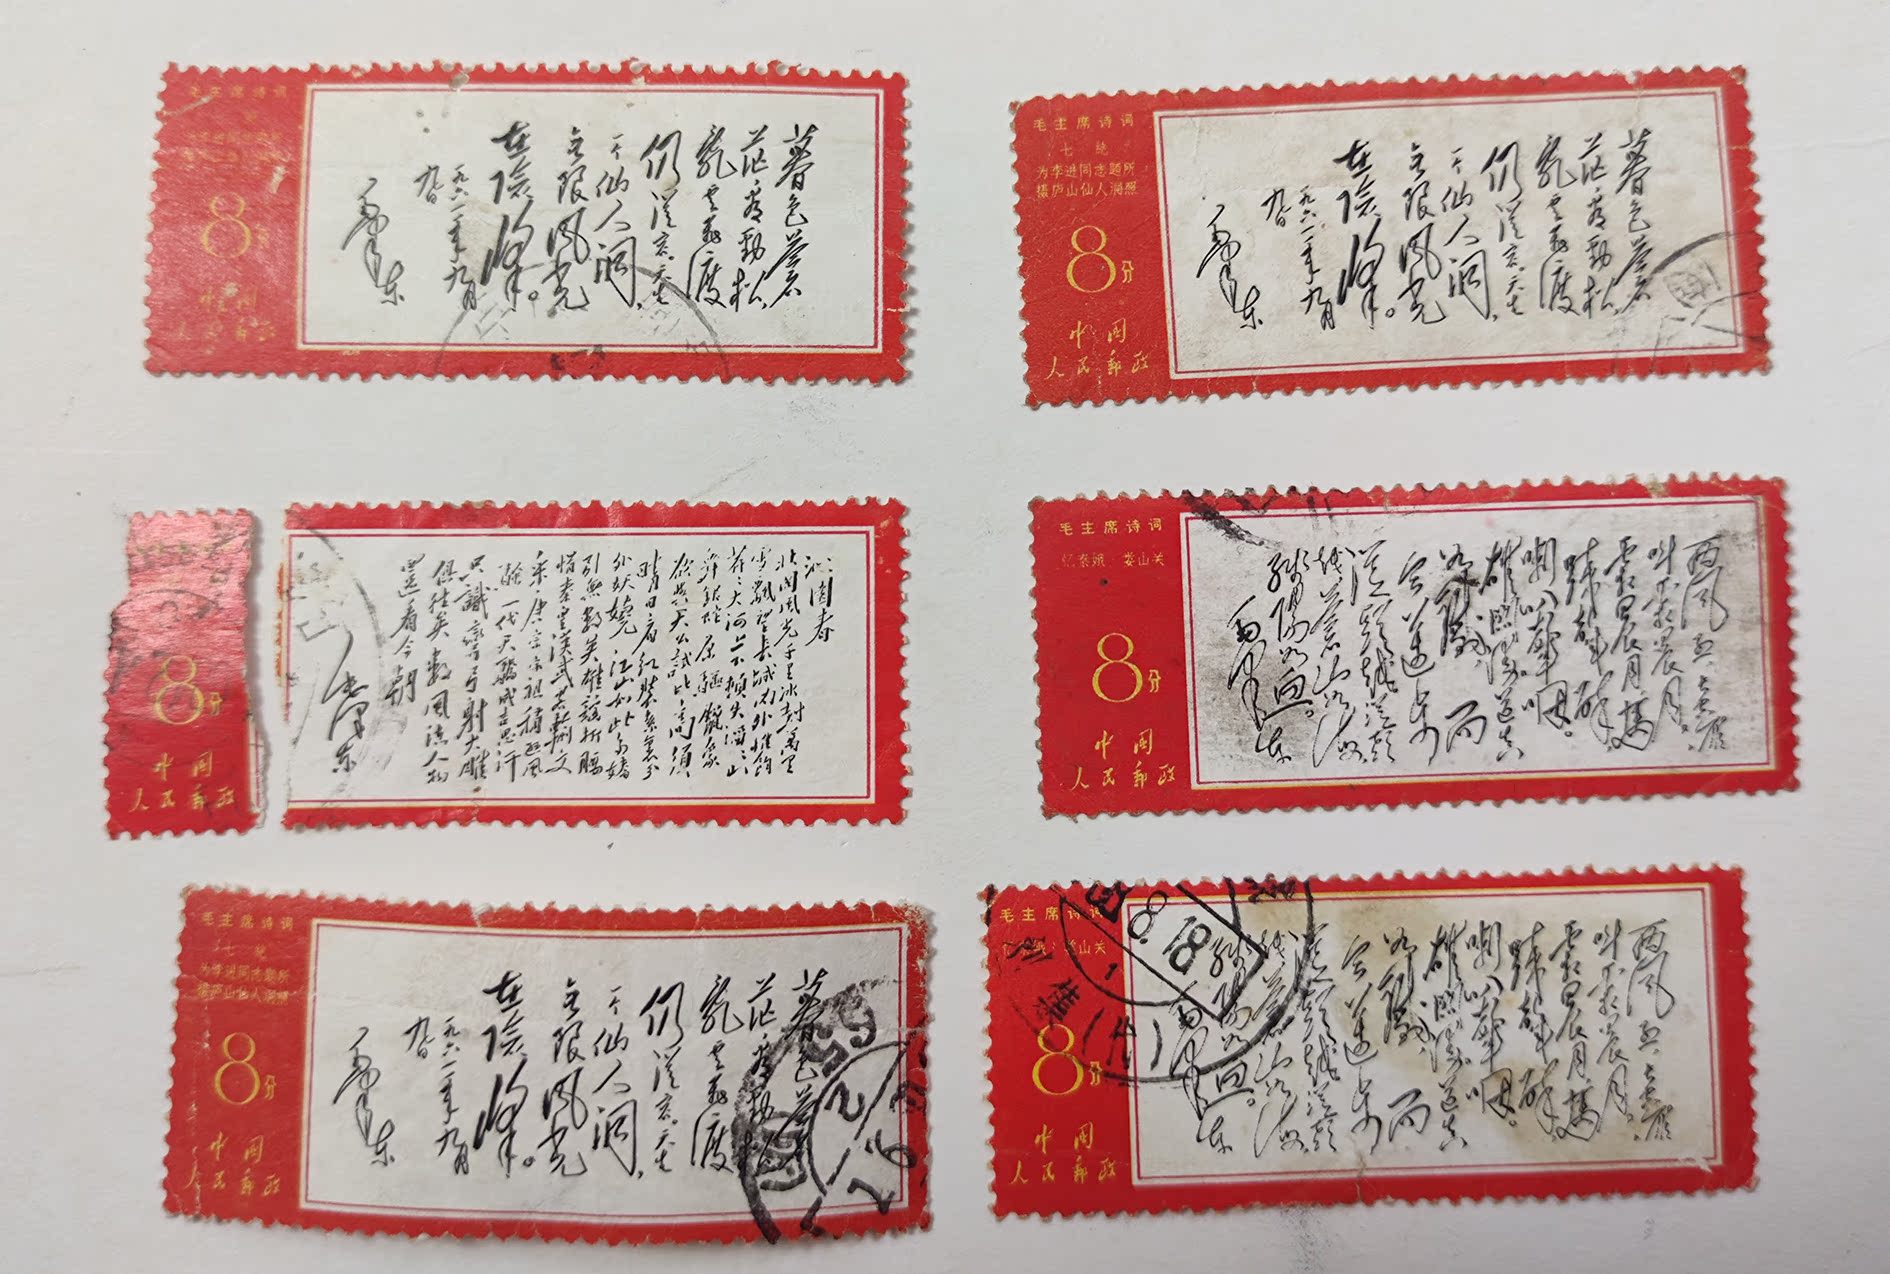 毛主席诗词
8分
中国
人民邮政
暮色苍
茫看劲松
乱云飞渡
仍从容天生
一个仙人洞
无限风光
在险峰。
一九六一年九月
九日
毛泽东
毛主席诗词
七绝
为李进同志题所
摄庐山仙人洞照
8分
中国
人民邮政
暮色苍
茫看劲松
乱云飞渡
仍从容天生
一个仙人洞
无限风光
在险峰。
一九六一年九月
九日
毛泽东
8分
中国
人民邮政
沁园春
北国风光千里冰封万里
雪飘望长城内外惟馀
莽莽大河上下顿失滔滔山
舞银蛇原驱腊象
欲与天公试比高须
晴日看红装素裹分
外妖娆 江山如此多娇
引无数英雄竞折腰
惜秦皇汉武略输文
采唐宗宋祖稍逊风
骚一代天骄成吉思汗
只识弯弓射大雕
俱往矣数风流人物
还看今朝
毛泽东
毛主席诗词
忆秦娥·娄山关
8分
中国
人民邮政
西风烈
长空雁
叫霜晨月
霜晨月
马蹄声碎
喇叭声咽
雄关漫道真
如铁
而
今迈步
从头越从头
越苍山如海
残阳如血
毛泽东
毛主席诗词
七绝
为李进同志题所
摄庐山仙人洞照
8分
中国
人民邮政
暮色苍
茫看劲松
乱云飞渡
仍从容天生
一个仙人洞
无限风光
在险峰。
一九六一年九月
九日
毛泽东
毛主席诗词
娄山关
8分
中国
人民邮政
8.18
西风烈
长空雁
叫霜晨月
霜晨月
马蹄声碎
喇叭声咽
雄关漫道真
如铁
而
今迈步
从头越从头
越苍山如海
残阳如血
毛泽东